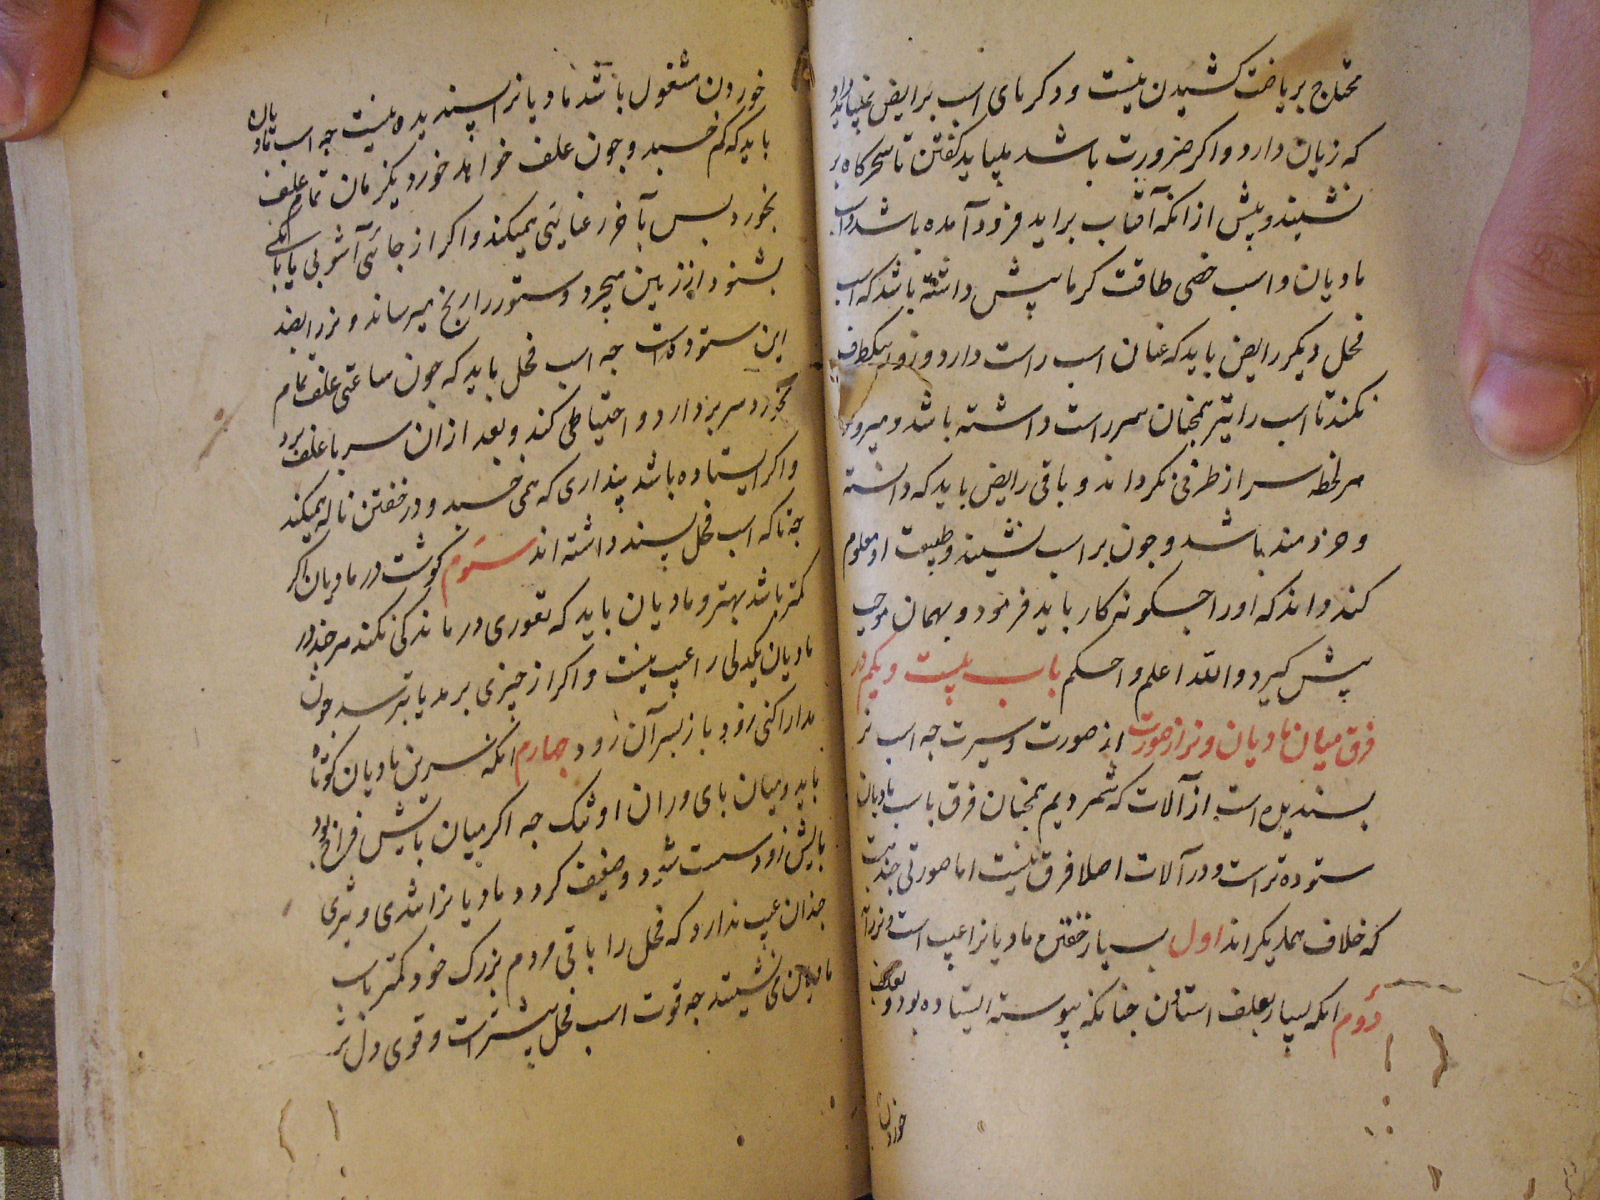 محتاج بریاضت کشیدن نیست و در کرمای اسب برایض نباید داد
که زیان دارد و اکر ضرورت باشد بباید کفتن تا سحرکاه بر
نشیند و پیش از انکه آفتاب براید فرود آمده باشد و اسب
مادیان و اسب خصی طاقت کرما پیش داشته باشد که اسب
فحل دیکر رایض باید که عنان اسب راست دارد و زود بیکطرف
نکند تا اسب را نیز همچنان سر راست داشته باشد و میرود
هر لحظه سر از طرفی نکرداند و باقی رایض باید که دانسته
و خردمند باشد و چون بر اسب نشیند و طبیعت او معلوم
کند داند که او را جکونه کار باید فرمود و بهمان موجب
پیش کیرد والله اعلم و احکم باب بیست و یکم در
فرق میان مادیان و نر از صورت از صورت و سیرت جه اسب نر
بسندیده است از آلات که شمردیم همچنان فرق باسب مادیان
ستوده تر است و در آلات اصلا فرق نیست اما صورتی جند هست
که خلاف همدیکراند اول بسیار خفتن مادیانرا عیب است و نررا نه
دوم انکه بسیار بعلف استادن جنانکه پیوسته ایستاده بود و بعلف
خوردن
خوردن مشغول باشد مادیانرا پسندیده نیست جه اسب مادیان
باید که کم خسبد و جون علف خواهد خورد یکزمان تمام علف
بخورد بس بآخر رعنایی میکند و اکر از جائی آشوبی یا بانکی
بشنود از زمین میجرد و ستور را رنج میرساند و نر را بضد
این ستوده است جه اسب فحل باید که جون ساعتی علف تمام
بخورد سر بردارد و احتیاطی کند و بعد از ان سر با علف برد
و اکر ایستاده باشد پنداری که همی خسبد و در خفتن ناله میکند
جناکه اسب فحل پسند داشته اند سوم کوشت در مادیان اکر
کمتر باشد بهتر و مادیان باید که تقوری در ماندکی نکند هر جند در
مادیان یکدلی را عیب نیست و اکر از چیزی برمد یا بترسد جون
مدارا کنی زود باز بسر آن رود جهارم انکه سرین مادیان کوتاه
باید و میان بای وران او تنک جه اکر میان بایش فراخ بود
بایش زود سست شود و ضعیف کردد و مادیانرا تندی و تیزی
جندان عیب ندارد که فحل را باقی مردم بزرک خود کمتر باسب
مادیان می نشینند جه قوت اسب فحل بیشتر است و قوی دل تر